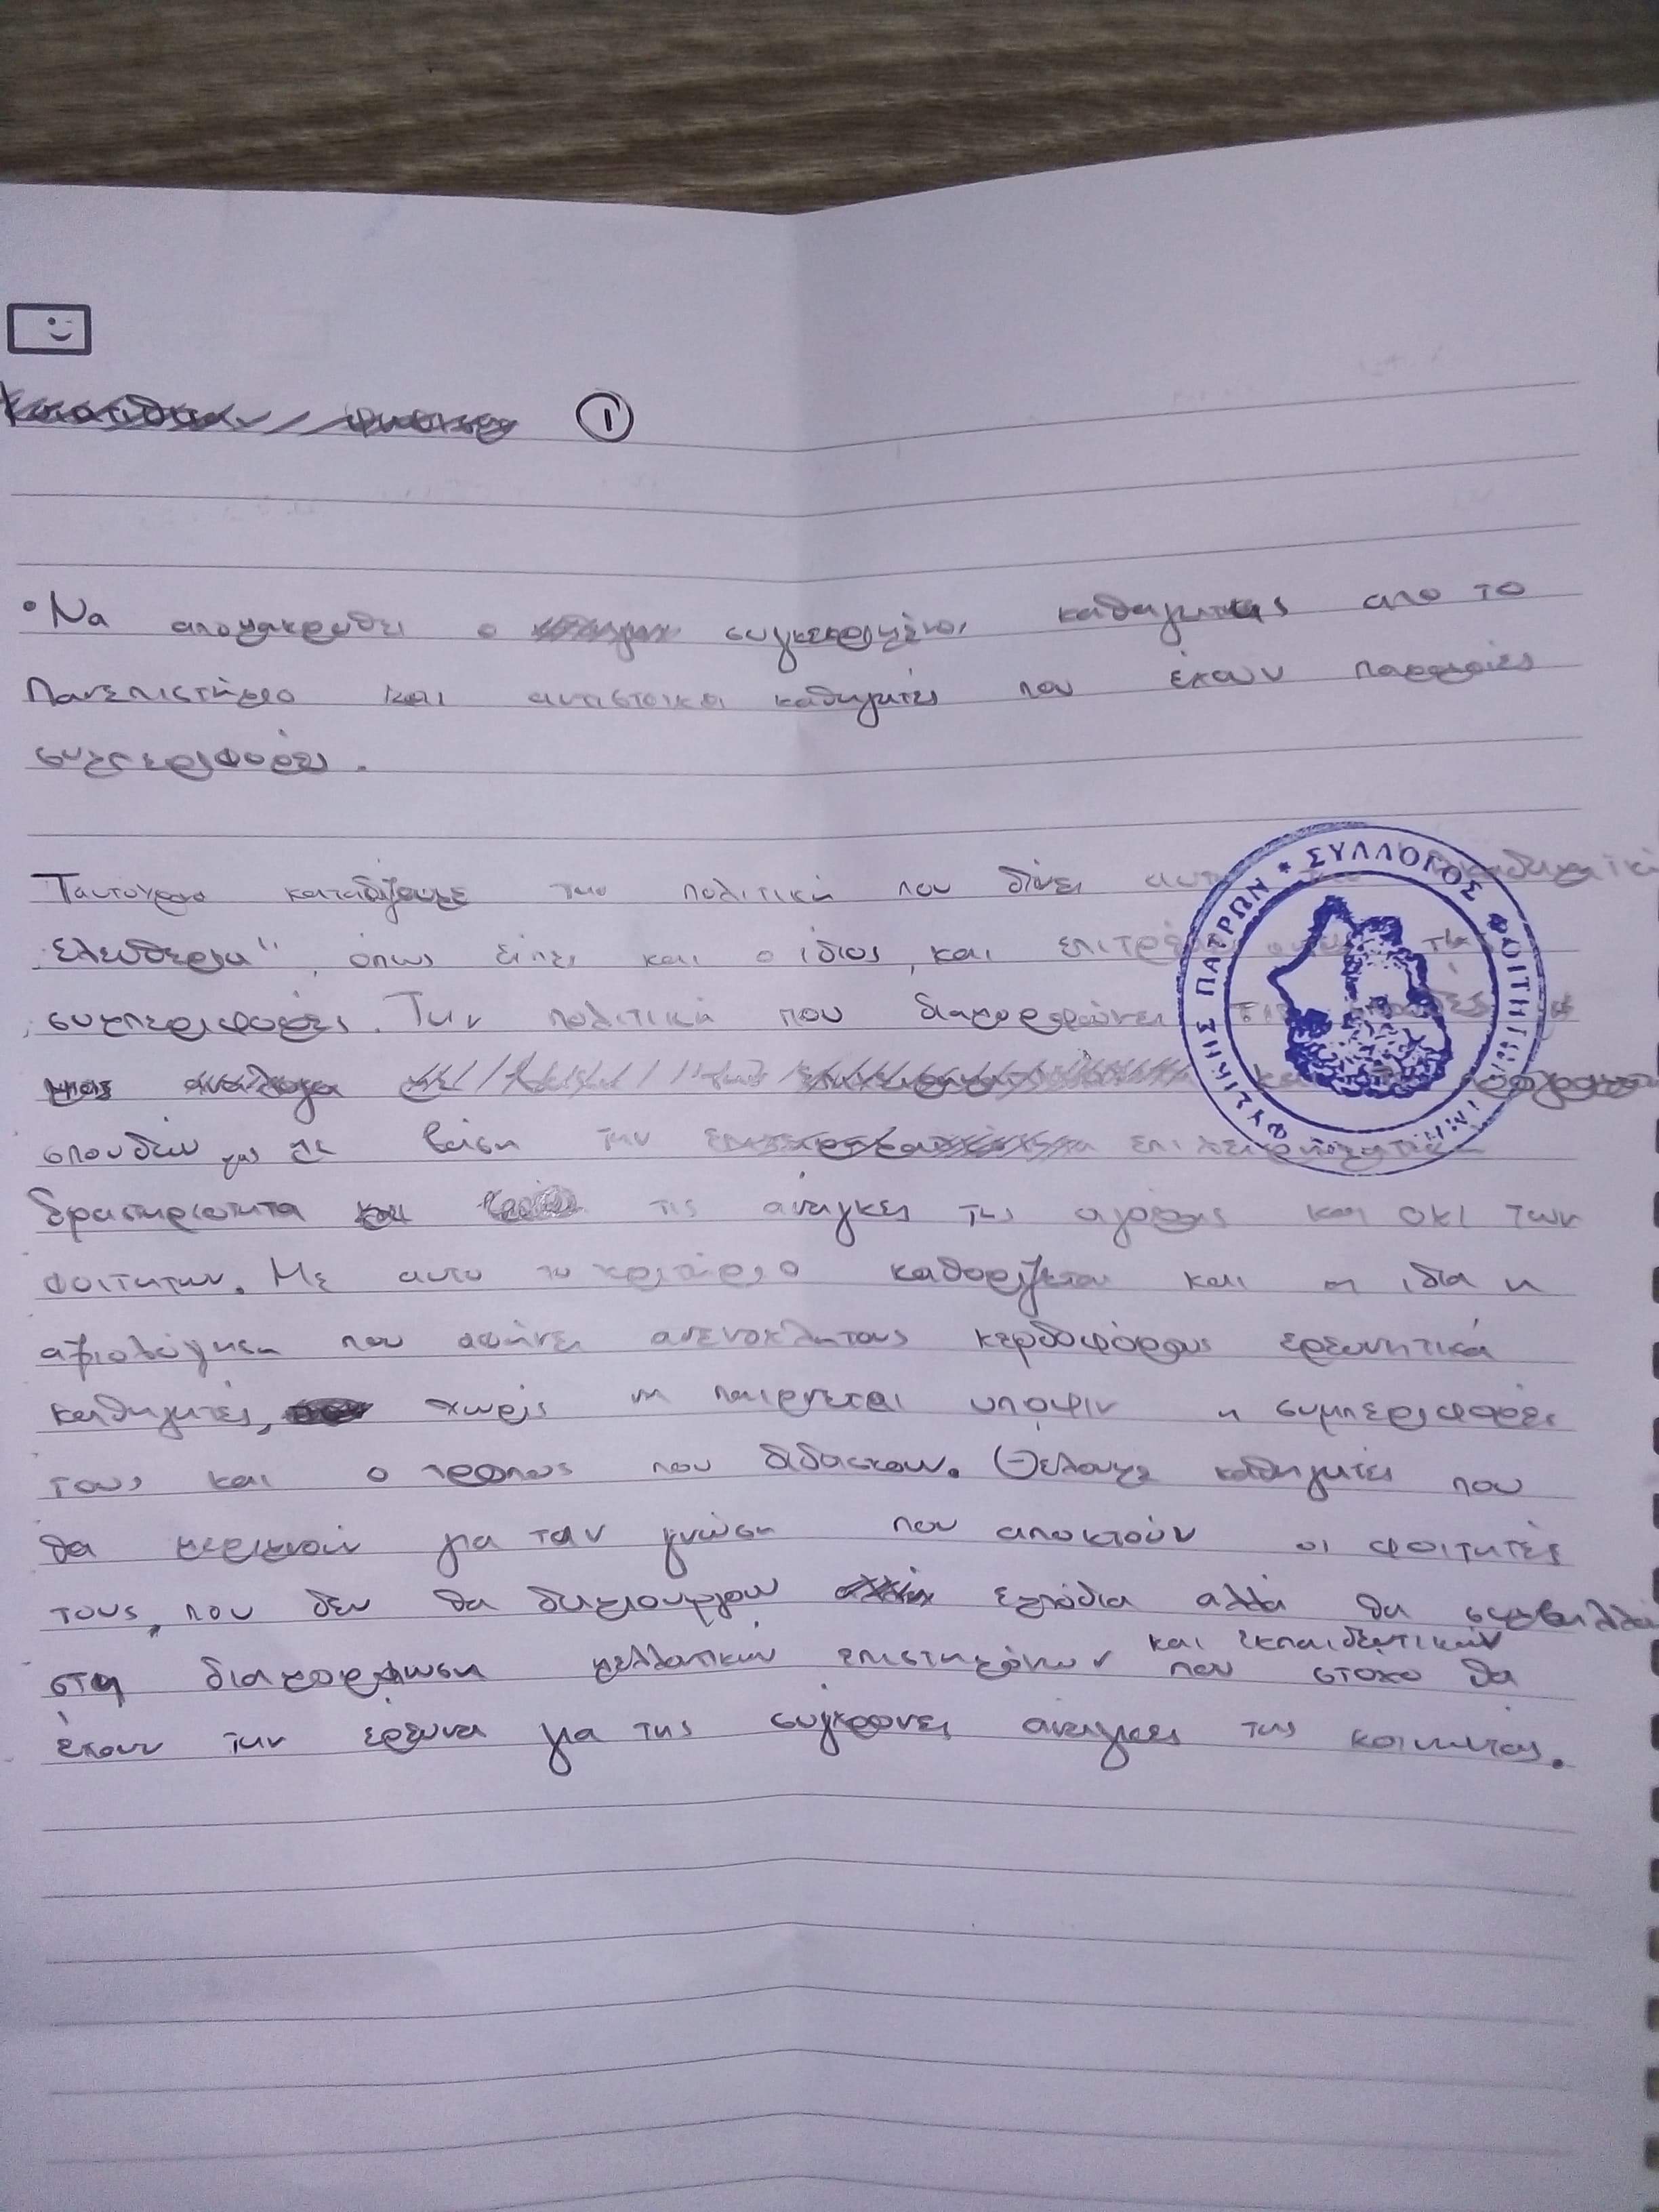 ①
•Να απομακρυνθεί ο συγκεκριμένος καθηγητής απο το
Πανεπιστήμιο και αντιστοιχοι καθηγητές που έχουν παρόμοιες
συμπεριφορές.
Ταυτόχρονα καταδικάζουμε την πολιτική που δίνει αυτή την ακαδημαϊκή
ελευθερία", όπως είπε και ο ίδιος, και επιτρέπει τις
συμπεριφορές. Την πολιτική που διαμορφώνει τις
και
σπουδών μας με βάση την επιχειρηματική
δραστηριοτητα τις ανάγκες της αγοράς και οχι των
φοιτητων. Με αυτο το κριτήριο καθορίζεται και η ιδια η
αξιολόγηση που αφήνει ανενοχλητους κερδοφόρους ερευνητικά
καθηγητές, χωρίς να παιρνεται υποψιν η συμπεριφορές
τους και ο τροπος που διδασκουν. Θέλουμε καθηγητές που
θα μεριμνούν για την γνώση που αποκτούν οι φοιτητές
τους, που δεν θα δημιουργουν εμπόδια αλλά θα συμβαλλου
στη διαμορφωση μελλοντικών επιστημόνων και εκπαιδευτικών που στοχο θα
έχουν την έρευνα για της σύγχρονες αναγκες της κοινωνιας.
ΣΥΛΛΟΓΟΣ ΦΟΙΤΗΤΩΝ ΦΥΣΙΚΗΣ ΠΑΤΡΩΝ *